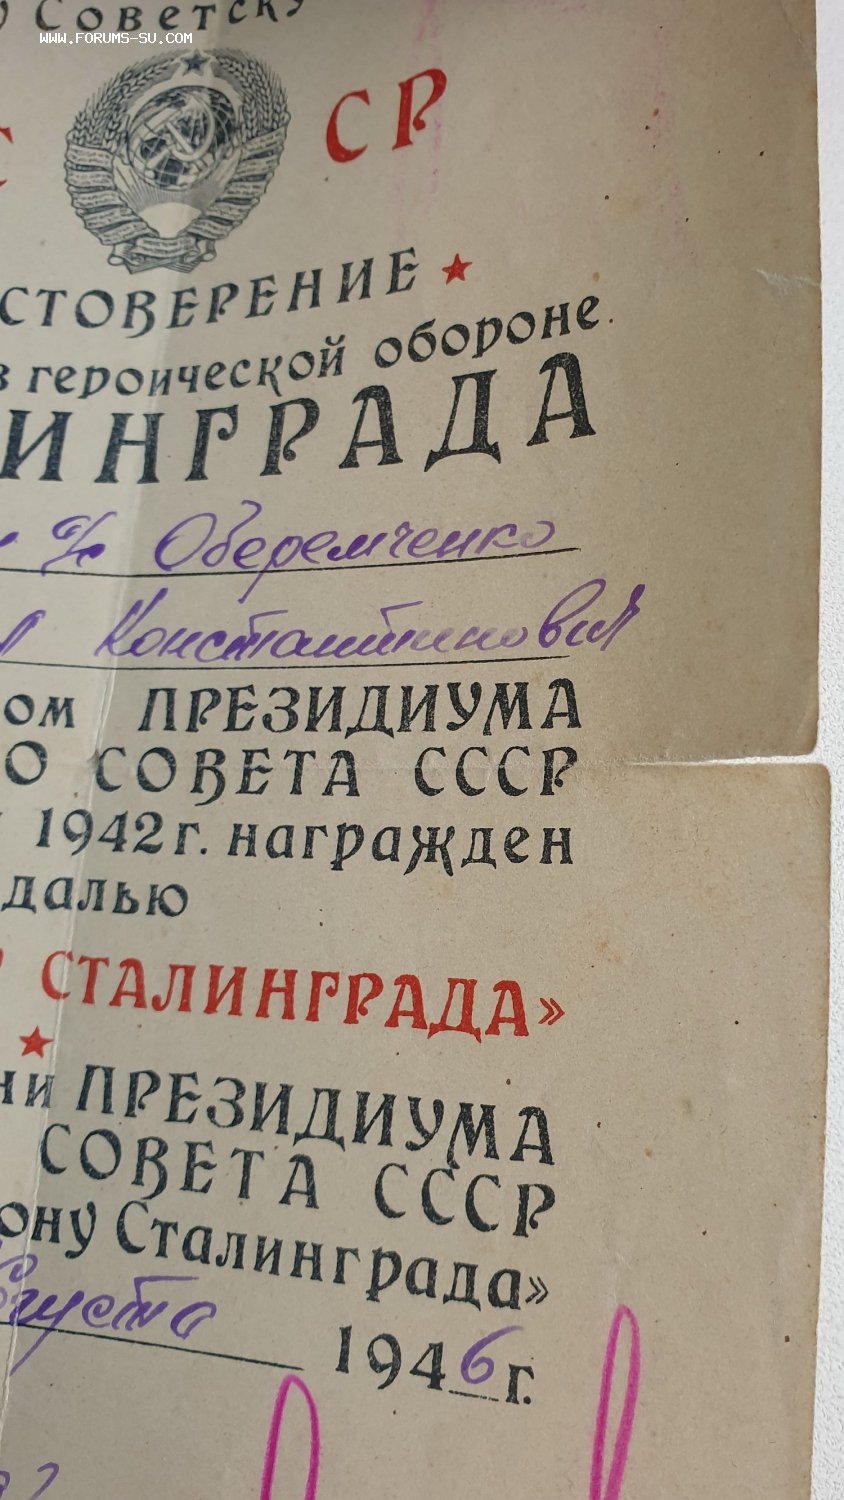 у Советску
WWW.FORUMS-SU.COM
С СР
СТОВЕРЕНИЕ
в героической обороне
ИНГРАДА
п/с Оберемченко
Константинович
ом ПРЕЗИДИУМА
О СОВЕТА СССР
1942 г. награжден
далью
СТАЛИНГРАДА»
ни ПРЕЗИДИУМА
СОВЕТА СССР
ону Сталинграда»
августа 1946 г.